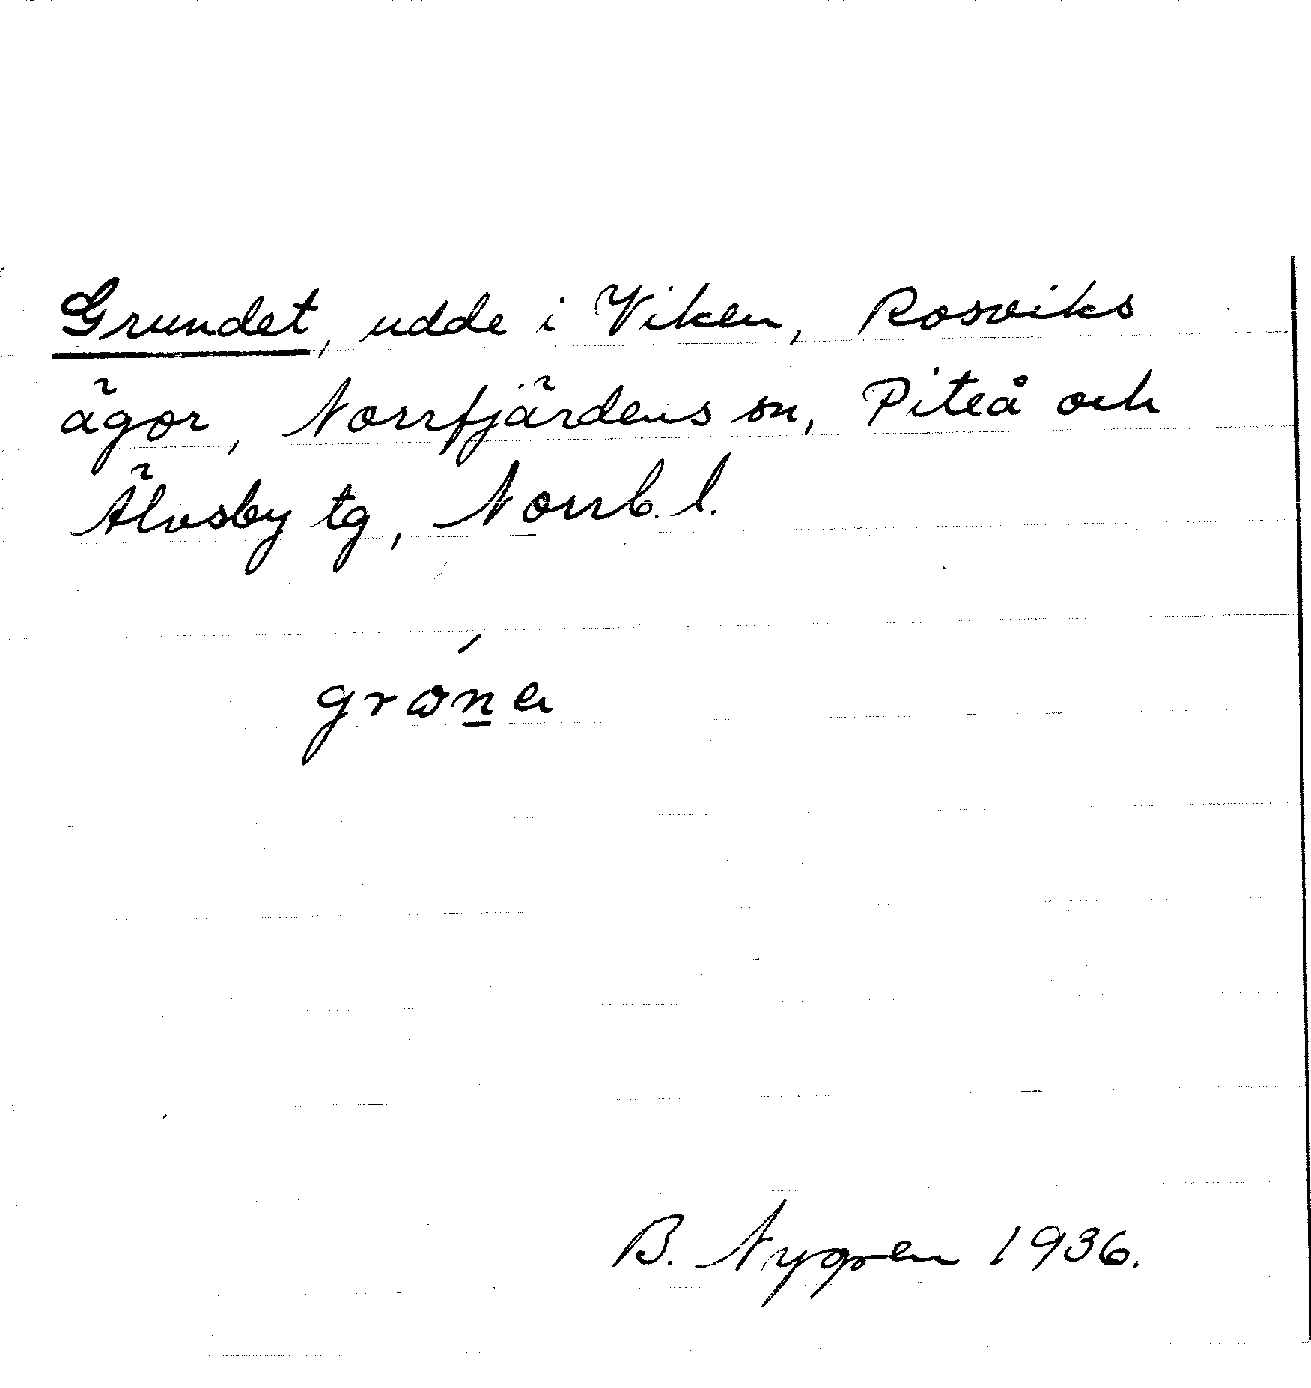 Grundet, udde i Viken, Rosviks
ägor, Norrfjärdens sn, Piteå och
Älvsby tg, Norrb. l.
B. Nygren 1936.